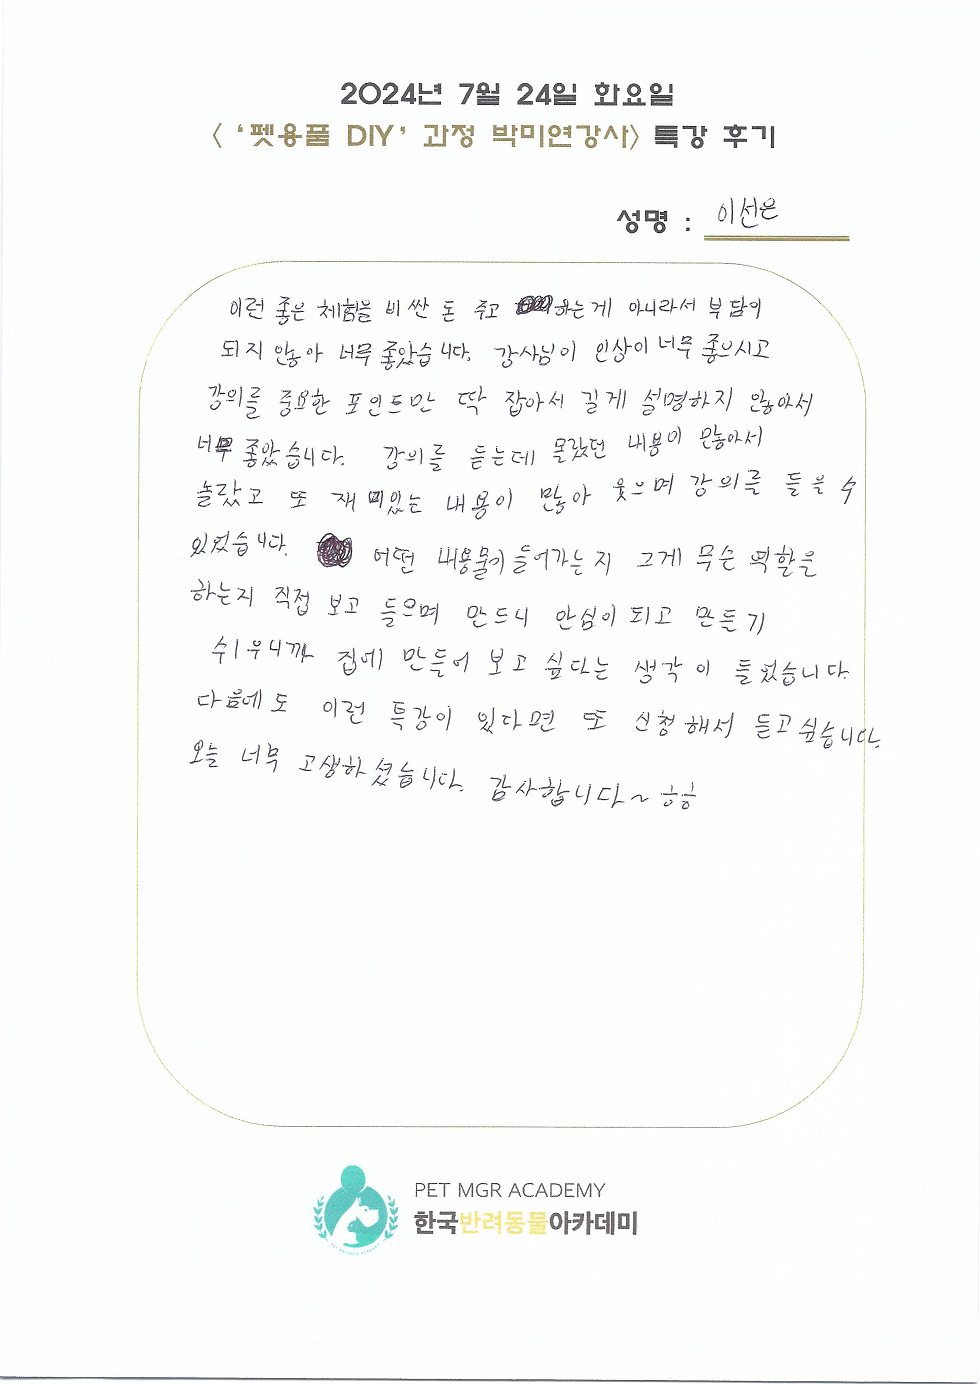 2024년 7월 24일 화요일
< ‘펫용품 DIY’ 과정 박미연강사> 특강 후기
성명 : 이선은
이런 좋은 체험을 비싼 돈 주고 하는게 아니라서 부담이
되지 않아 너무 좋았습니다. 강사님이 인상이 너무 좋으시고
강의를 중요한 포인트만 딱 잡아서 길게 설명하지 않아서
너무 좋았습니다. 강의를 듣는데 몰랐던 내용이 많아서
놀랐고 또 재미있는 내용이 많아 웃으며 강의를 들을 수
있었습니다. 어떤 내용물이 들어가는지 그게 무슨 역할을
하는지 직접 보고 들으며 만드니 안심이 되고 만들기
쉬우니까 집에 만들어 보고 싶다는 생각이 들었습니다.
다음에도 이런 특강이 있다면 또 신청해서 듣고싶습니다.
오늘 너무 고생하셨습니다. 감사합니다~ ㅎㅎ
PET MGR ACADEMY
한국반려동물아카데미